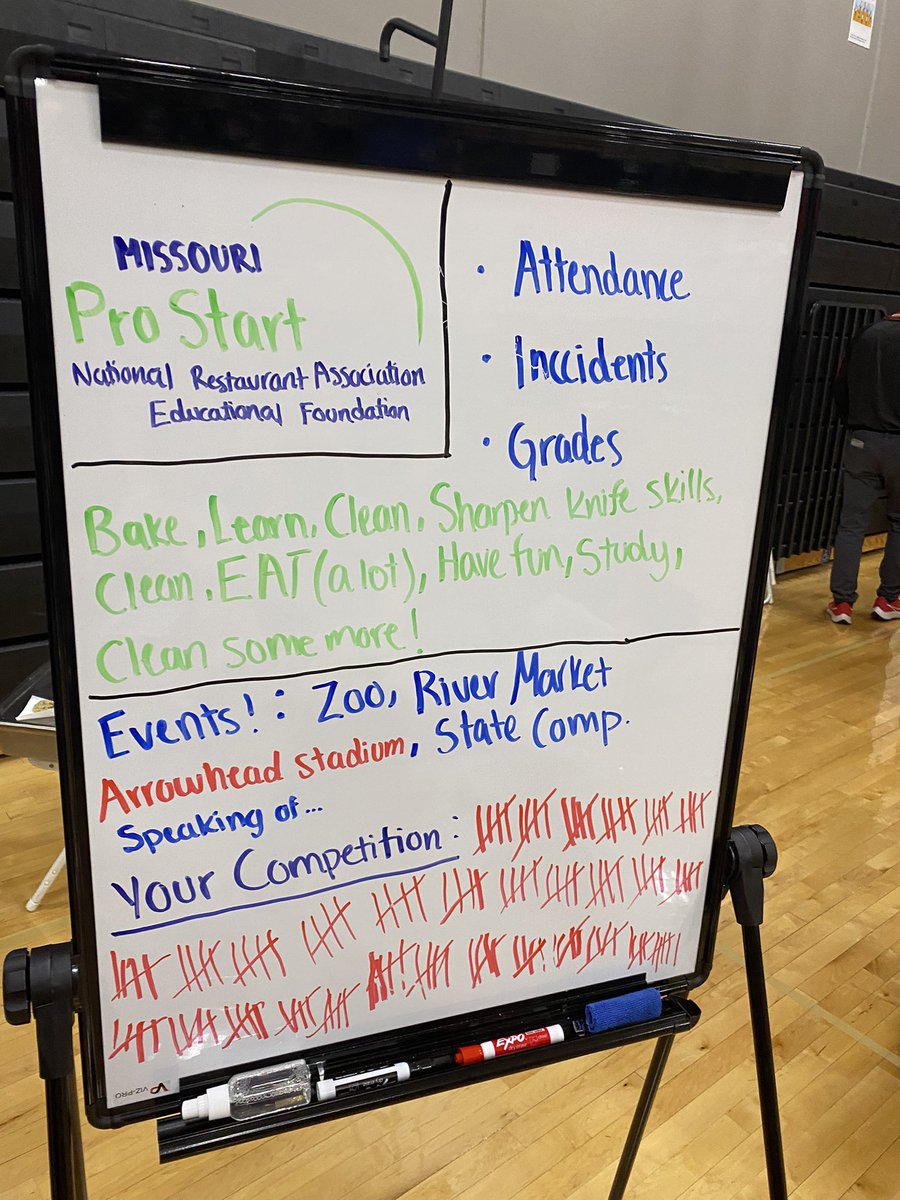 MISSOURI
Pro Start
National Restaurant Association
Educational Foundation
• Attendance
• Inccidents
• Grades
Bake, Learn, Clean, Sharpen knife skills,
Clean, EAT (a lot), Have fun, Study,
Clean some more!
Events! : Zoo, River Market
Arrowhead Stadium, State Comp.
Speaking of...
Your Competition:
EXPO
VIZ-PRO